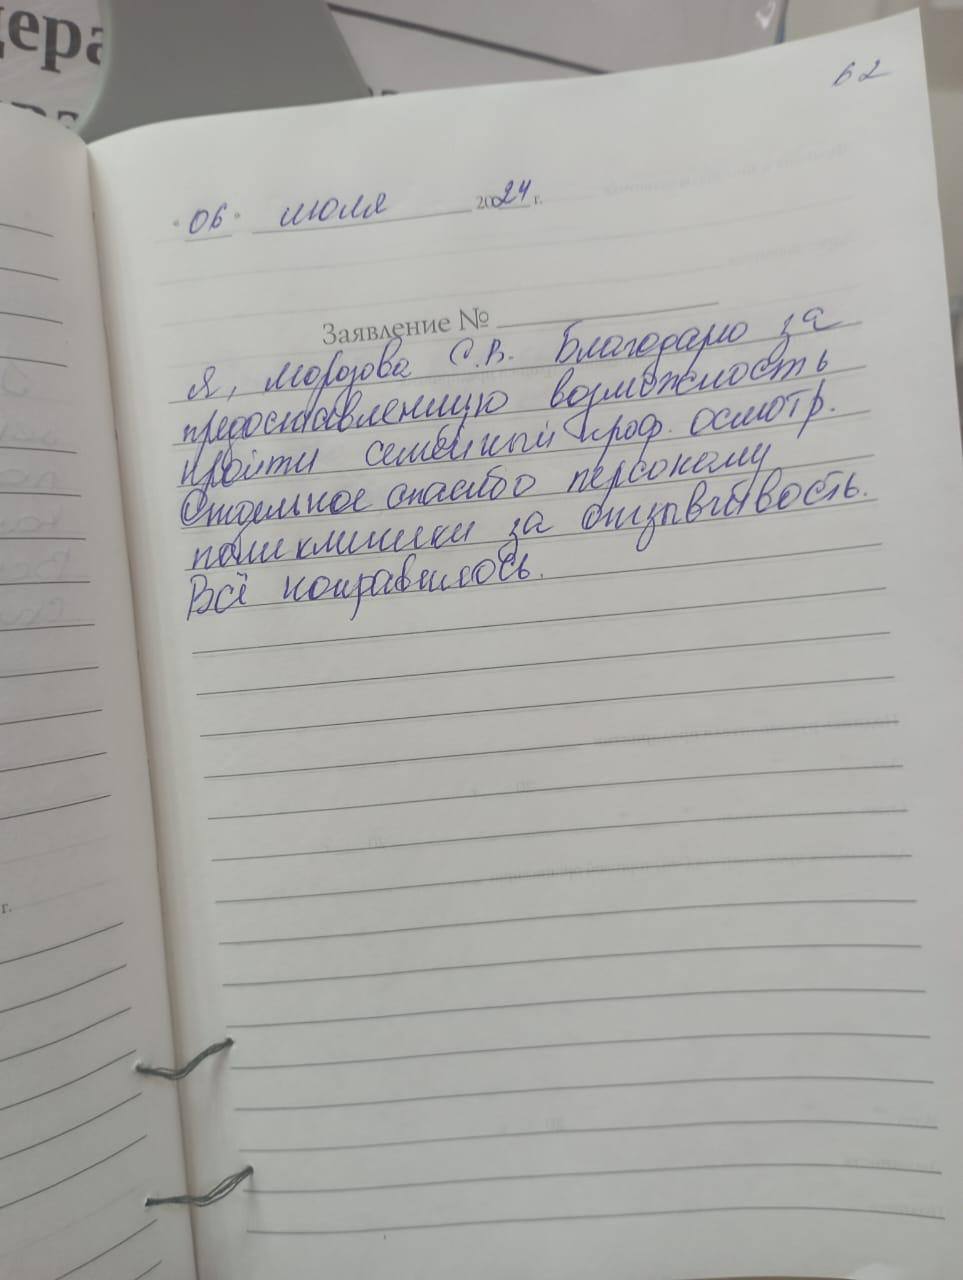 дера
62
"06" июля 2024 г.
Заявление №
Я, Морозова С.В. Благодарю за
предоставленную возможность
пройти семейный проф. осмотр.
Отдельное спасибо персоналу
поликлиники за отзывчивость.
Всё понравилось.
г.